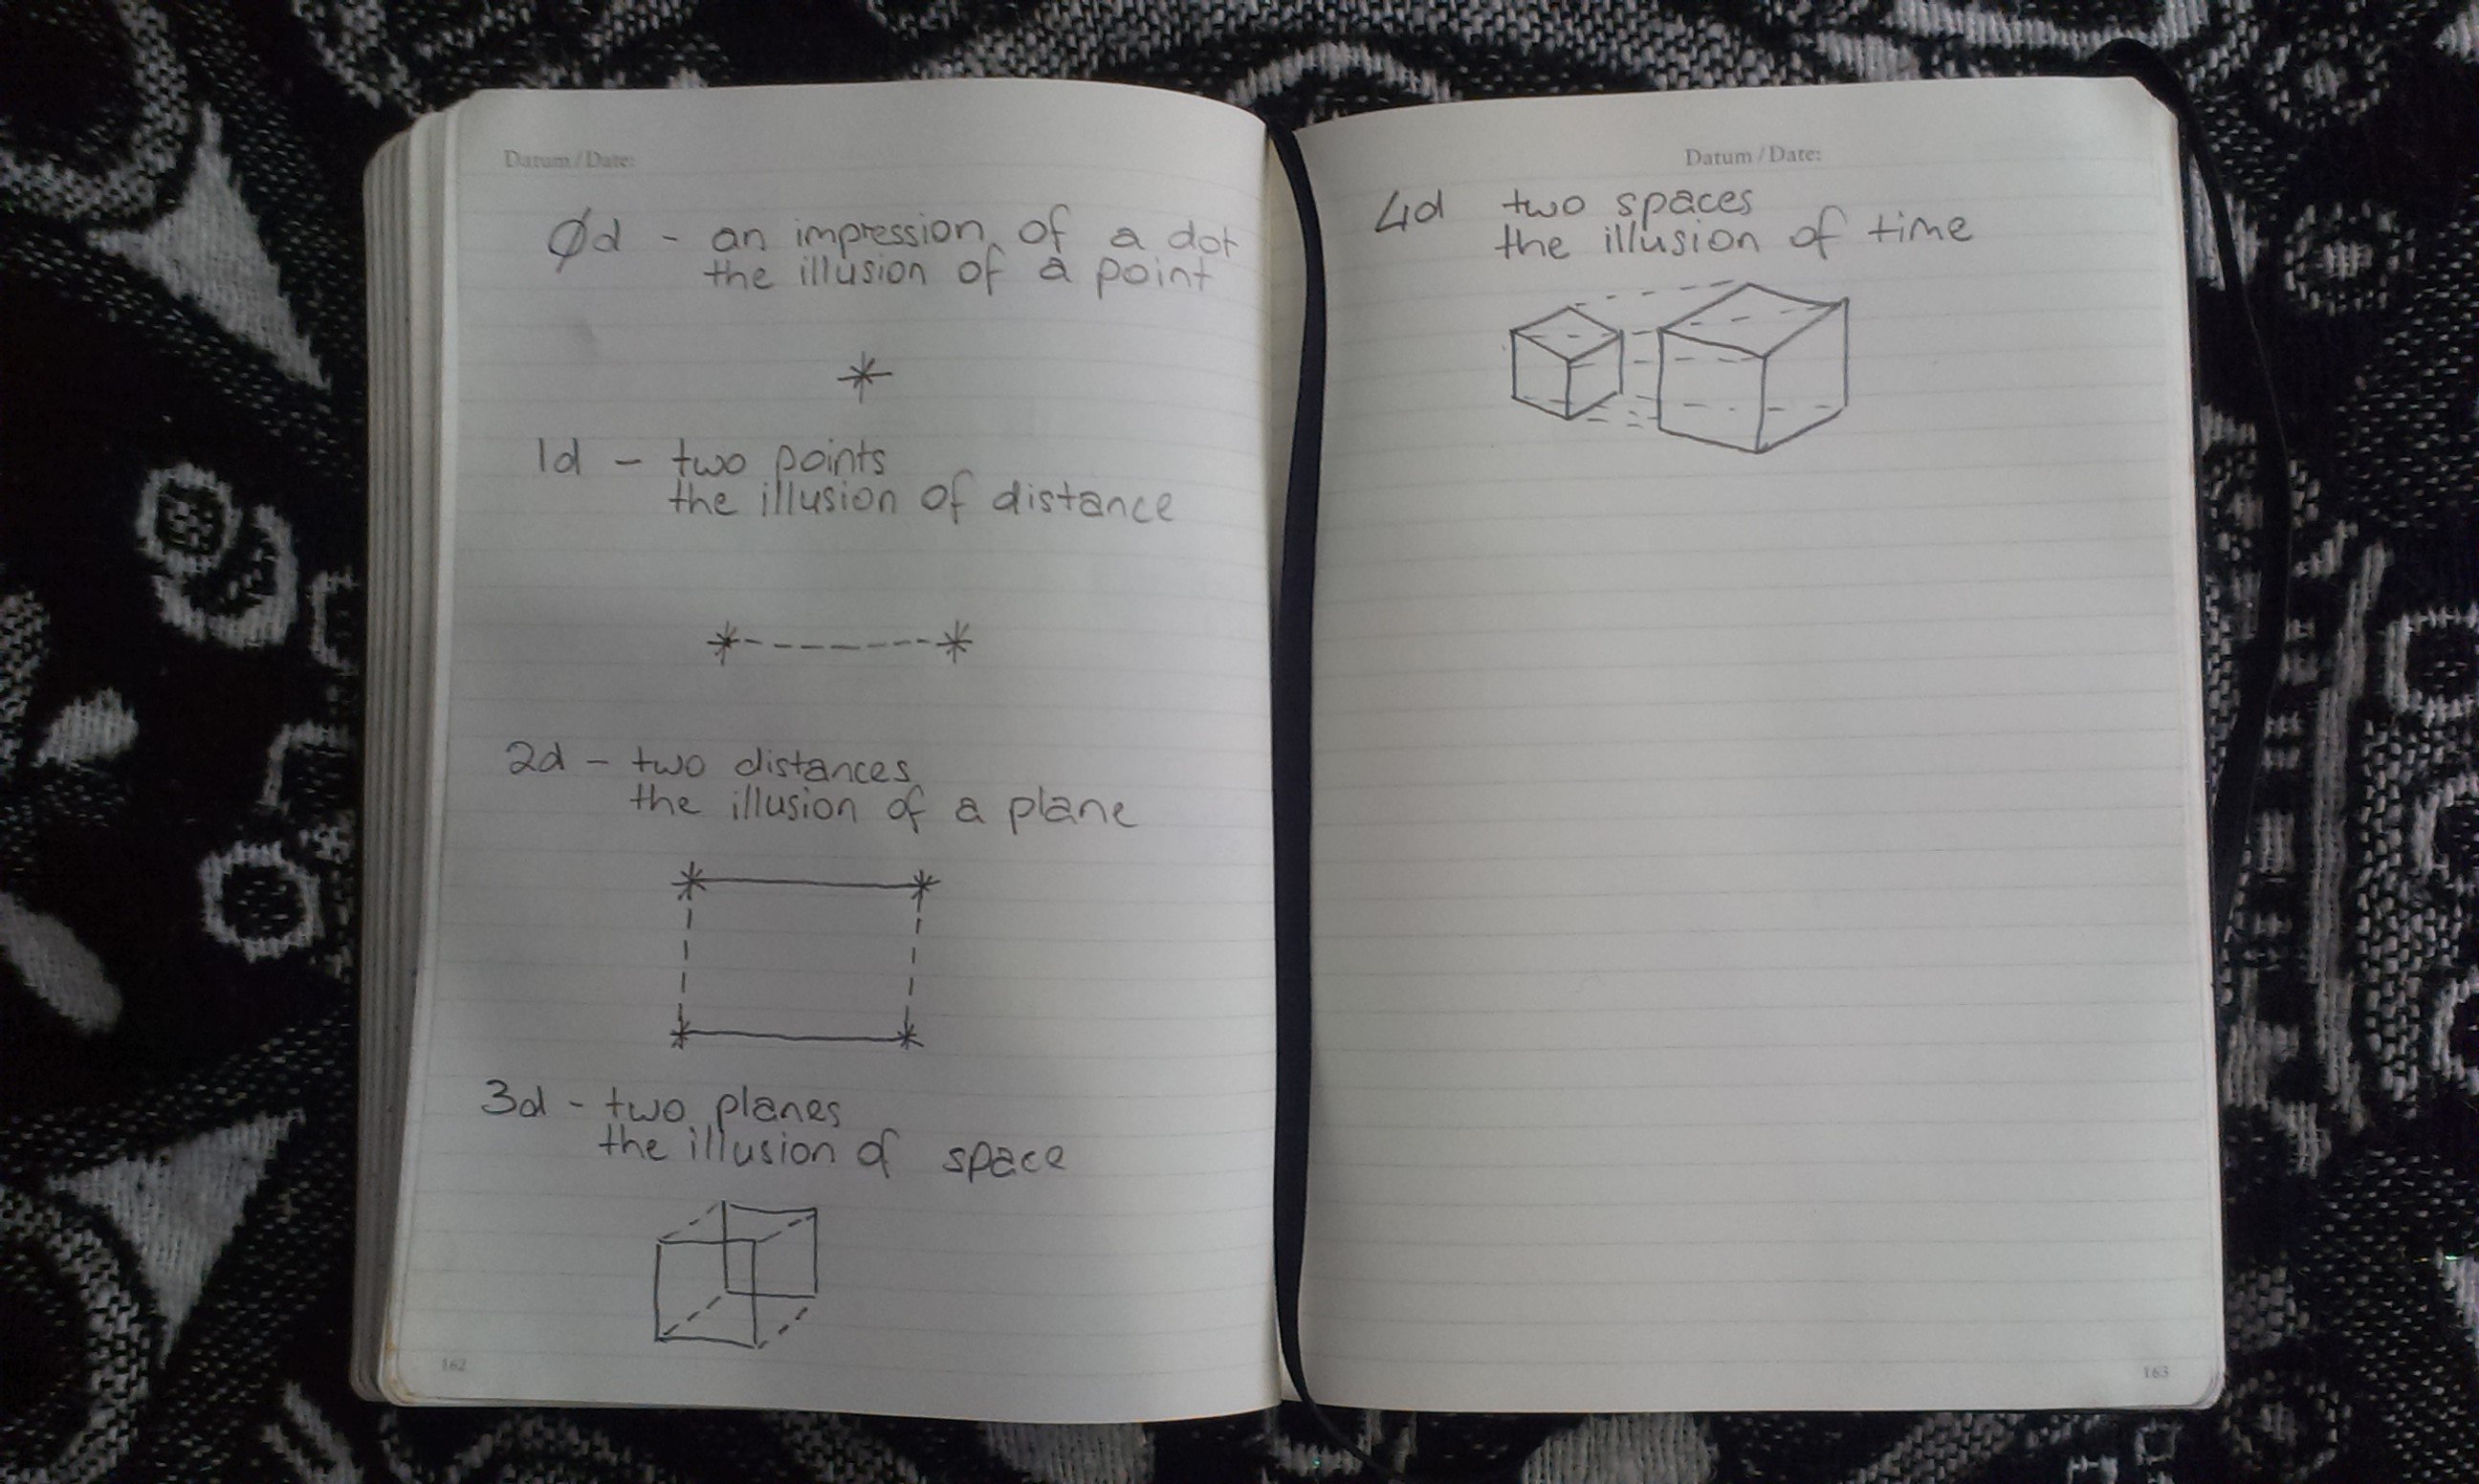 Datum / Date:
Ød - an impression of a dot
the illusion of a point
1d - two points
the illusion of distance
2d - two distances
the illusion of a plane
3d - two planes
the illusion of space
162
Datum / Date:
4d two spaces
the illusion of time
163